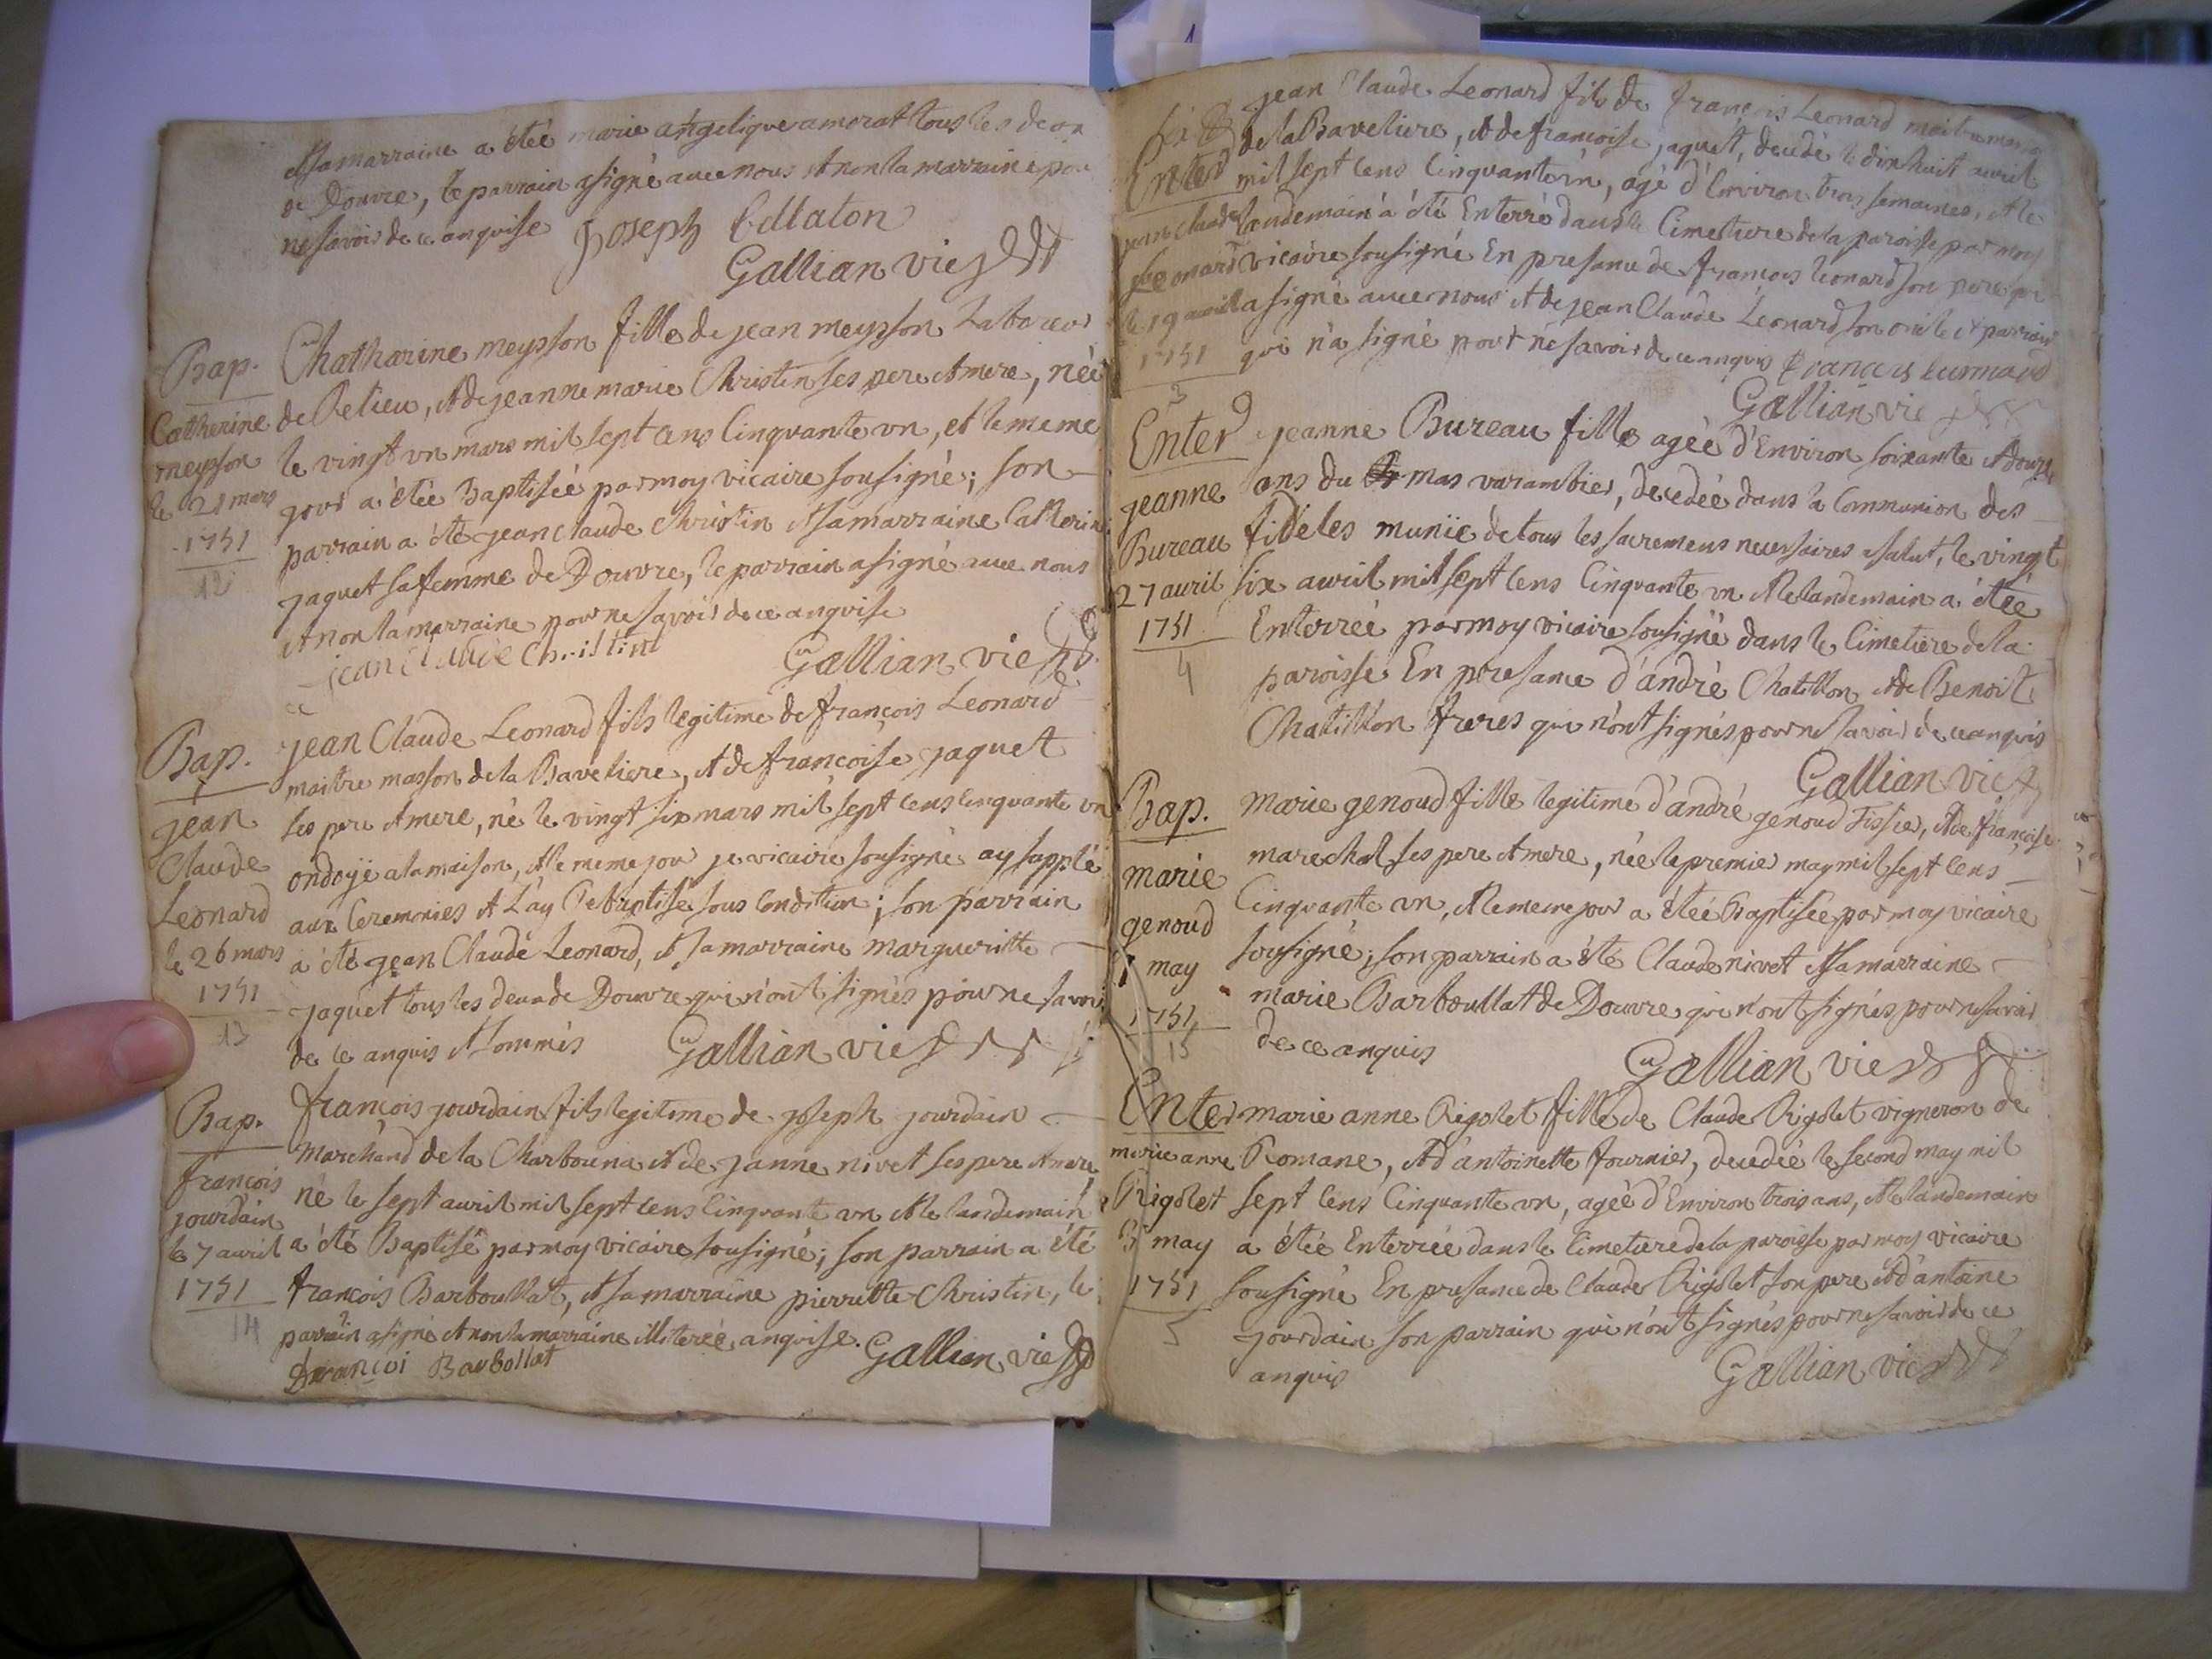 & sa marraine a étée marie angelique amorat tous les deux
de Douvre, le parrain a signé avec nous & non la marraine pour
ne savoir de ce anquise
Joseph
Gallian vic
Bap.
Catherine
meysson
le 21 mars
1751
12
Chatharine meysson fille de jean meysson Laboreur
de Relieu, & de jeanne marie Christin ses pere & mere, née
le vingt un mars mil sept cens cinquante un, et le meme
jour a étée Baptisée par moy vicaire sousigné; son
parrain a été jean claude Christin & sa marraine Catherine
jaquet sa femme de Douvre, le parrain a signé avec nous
& non la marraine pour ne savoir de ce anquise
jean Claude Christin
Gallian vic
Bap.
jean
Claude
Leonard
le 26 mars
1751
13
jean Claude Leonard fils legitime de françois Leonard
maitre masson de la Baveliere, & de françoise jaquet
ses pere & mere, né le vingt six mars mil sept cens cinquante un
ondoyé a la maison, & le meme jour je vicaire sousigné ay supplé
aux Ceremonies & L'ay Rebaptisé sous condition; son parrain
a été jean Claude Leonard, & sa marraine margueritte
jaquet tous les deux de Douvre qui n'ont signés pour ne savoir
de ce anquis & sommés
Gallian vic
Bap.
françois
jourdain
le 7 avril
1751
14
françois jourdain fils legitime de joseph jourdain
Marchand de la Charbouna & de janne nivet ses pere & mere
né le sept avril mil sept cens cinquante un & le landemain
a été Baptisé par moy vicaire sousigné; son parrain a été
françois Barboullat, & sa marraine pierrette Christin, le
parrain a signé & non la marraine illiterée anquise.
françoi Barbollat
Gallian vic
Enter
jean claude
Leonard
le 19 avril
1751
3
jean Claude Leonard fils de françois Leonard maitre masson
de la Baveliere, & de francoise jaquet, decedé le dixhuit avril
mil sept cens cinquante un, agé d'Environ trois semaines, & le
landemain a été Enterré dans le Cimetiere de la paroisse par moy
vicaire sousigné En presance de françois leonard son pere qui
a signé avec nous & de jean Claude Leonard son oncle & parrain
qui n'a signé pour ne savoir de ce anquis
Gallian vic
Enter
jeanne
Bureau
27 avril
1751
4
jeanne Bureau fille agée d'Environ soixante & douze
ans du mas varambier, decedée dans la Communion des
fidèles munie de tous les sacremens necessaires a salut, le vingt
six avril mil sept cens cinquante un & le landemain a étée
Enterrée par moy vicaire sousigné dans le Cimetiere de la
paroisse En presance d'andré Chatillon & de Benoit
Chatillon freres qui n'ont signés pour ne savoir de ce anquis
Gallian vic
Bap.
marie
genoud
1 may
1751
15
marie genoud fille legitime d'andré genoud Tissier, & de françoise
marechal ses pere & mere, née le premier may mil sept cens
Cinquante un, & le meme jour a étée Baptisée par moy vicaire
sousigné; son parrain a été Claude nivet & sa marraine
marie Barboullat de Douvre qui n'ont signés pour ne savoir
de ce anquis
Gallian vic
Enter
marie anne
Rigolet
3 may
1751
5
marie anne Rigolet fille de Claude Rigolet vigneron de
Romane, & d'antoinette fournier, decedée le second may mil
sept cens Cinquante un, agée d'Environ trois ans, & le landemain
a étée Enterrée dans le Cimetiere de la paroisse par moy vicaire
sousigné En presance de Claude Rigolet son pere & d'antoine
jourdain son parrain qui n'ont signés pour ne savoir de ce
anquis
Gallian vic